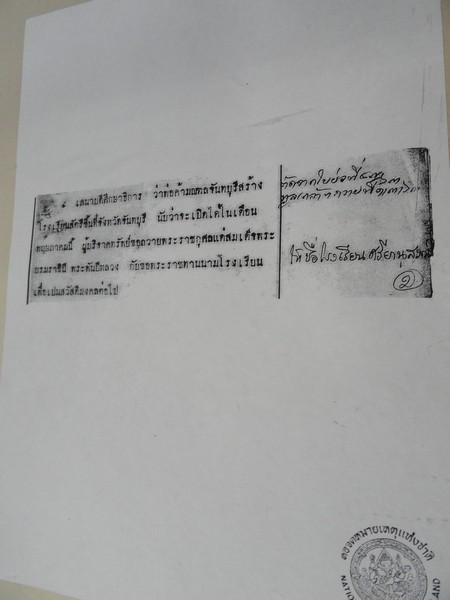 ๕ เสนาบดีศึกษาธิการ ว่าพ่อค้ามณฑลจันทบุรีสร้าง
โรงเรียนสัตรีขึ้นที่จังหวัดจันทบุรี นับว่าจะเปิดได้ในเดือน
พฤษภาคมนี้ ผู้บริจาคทรัพย์ขอถวายพระราชกุศลแด่สมเด็จพระ
บรมราชินี พระพันปีหลวง กับขอพระราชทานนามโรงเรียน
เพื่อเปนสวัสดิมงคลต่อไป
ให้ชื่อโรงเรียน ศรียานุสรณ์
๑
หอจดหมายเหตุแห่งชาติ